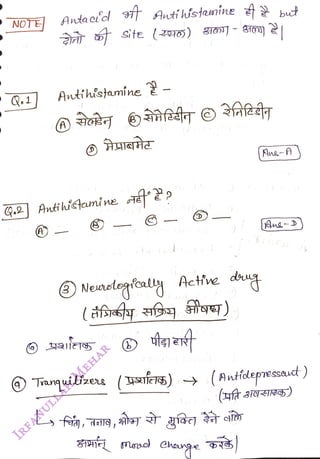 NOTE Antacid भी Antihistamine ही है but
दोनों की site (स्थल) अलग-अलग है।
Q.1 Antihistamine है -
Ⓐ सेल्डेन Ⓑ सेमेटिडीन Ⓒ रेनिटिडीन
Ⓓ मेप्राबमेट
Ans-A
Q.2 Antihistamine नहीं है?
Ⓐ — Ⓑ — Ⓒ — Ⓓ —
Ans-D
③ Neurologically Active drug
(तंत्रिकीय सक्रिय औषध)
ⓐ प्रशांतक ⓑ पीड़ाहारी
ⓐ Tranquilizers (प्रशांतक) → (Antidepressant)
(प्रति अवसादक)
↳ चिंता, तनाव, क्षोभ से मुक्ति देने वाले
अर्थात् mood change करके।
IRFANULLAH MEHAR